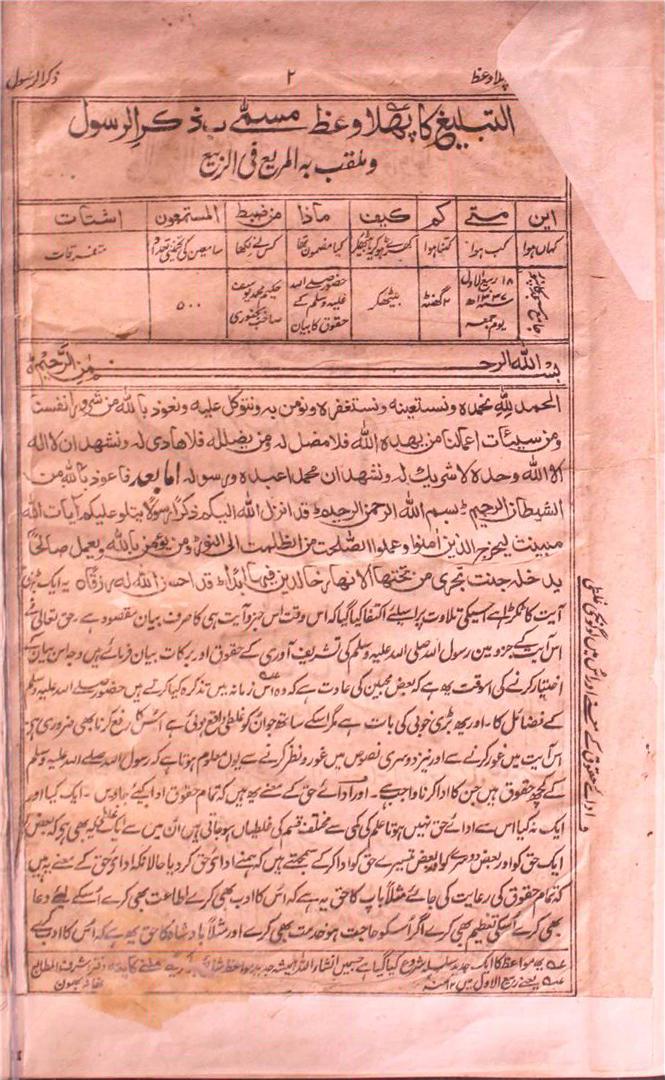 پہلا وعظ ۲ ذکر الرسول
التبلیغ کا پہلا وعظ مسمّٰی بہ ذکر الرسول
وملقب بہ المربع فی الربیع
این متے کم کیف ماذا من ضبط المستمعون اشتات
کہاں ہوا کب ہوا کتنا ہوا کھڑے ہو کر یا بیٹھکر کیا مضمون تھا کس نے لکھا سامعین کی تخمینی تعداد متفرقات
جامع مسجد کانپور ۱۸ ربیع الاول ۱۳۳۷ھ یوم جمعہ ۲ گھنٹہ بیٹھکر حضور صلے اللہ علیہ وسلم کے حقوق کا بیان حکیم محمد یوسف صاحب بجنوری ۵۰۰
بسم اللہ الرحمن الرحیم
الحمد للہ نحمدہ ونستعینہ ونستغفرہ ونؤمن بہ ونتوکل علیہ ونعوذ باللہ من شرور انفسنا
ومن سیئات اعمالنا من یھدہ اللہ فلا مضل لہ ومن یضللہ فلا ھادی لہ ونشھد ان لا الہ
الا اللہ وحدہ لا شریک لہ ونشھد ان محمدا عبدہ ورسولہ اما بعد فاعوذ باللہ من
الشیطان الرجیم بسم اللہ الرحمن الرحیم قد انزل اللہ الیکم ذکرا رسولا یتلو علیکم آیات اللہ
مبینت لیخرج الذین امنوا وعملوا الصلحت من الظلمت الی النور ومن یؤمن باللہ ویعمل صالحا
یدخلہ جنت تجری من تحتھا الانھار خالدین فیھا ابدا قد احسن اللہ لہ رزقا یہ ایک بڑی
آیت کا ٹکڑا ہے اسکی تلاوت پر اسلئے اکتفا کیا گیا کہ اس وقت اس جزو آیت ہی کا صرف بیان مقصود ہے۔ حق تعالیٰ نے
اس آیت کے جزو میں رسول اللہ صلی اللہ علیہ وسلم کی تشریف آوری کے حقوق اور برکات بیان فرمائے ہیں وجہ اس بیان کے
اختیار کرنے کی اسوقت یہ ہے کہ بعض محبین کی عادت ہے کہ وہ اس زمانہ میں تذکرہ کیا کرتے ہیں حضور صلے اللہ علیہ وسلم
کے فضائل کا۔ اور یہ بڑی خوبی کی بات ہے مگر اسکے ساتھ جو ان کو غلطی واقع ہوئی ہے اُسکا رفع کرنا بھی ضروری ہی
اس آیت میں غور کرنے سے اور نیز دوسری نصوص میں غور و نظر کرنے سے یوں معلوم ہوتا ہے کہ رسول اللہ صلے اللہ علیہ وسلم
کے کچھ حقوق ہیں جن کا ادا کرنا واجب ہے۔ اور ادائے حق کے معنے یہ ہیں کہ تمام حقوق ادا کئے جاویں۔ ایک کیا اور
ایک نہ کیا اس سے ادائے حق نہیں ہوتا علم کی کمی سے مختلف قسم کی غلطیاں ہو جاتی ہیں ان میں سے ایک غلطی یہ بھی ہو کہ بعض
ایک حق کو اور بعض دوسرے کو اور بعض تیسرے حق کو ادا کر کے سمجھتے ہیں کہ ہمنے ادائے حق کر دیا حالانکہ ادائ حق کے معنے یہ ہیں
کہ تمام حقوق کی رعایت کی جائے مثلاً باپ کا حق یہ ہے کہ اُس کا ادب بھی کرے اطاعت بھی کرے اُسکے لئے دعا
بھی کرے اُسکی تعظیم بھی کرے اگر اُسکو حاجت ہو خدمت بھی کرے اور مثلاً بادشاہ کا حق یہ ہے کہ اُس کا ادب کرے
عہ یہ مواعظ کا ایک جدید سلسلہ شروع کیا گیا ہے جسمیں انشاء اللہ ہمیشہ جدید مواعظ شائع
عہ یعنے ربیع الاول میں ۱۲ منہ
و ادائے حقوق کے معنے اور اس میں لوگوں کی غلطی